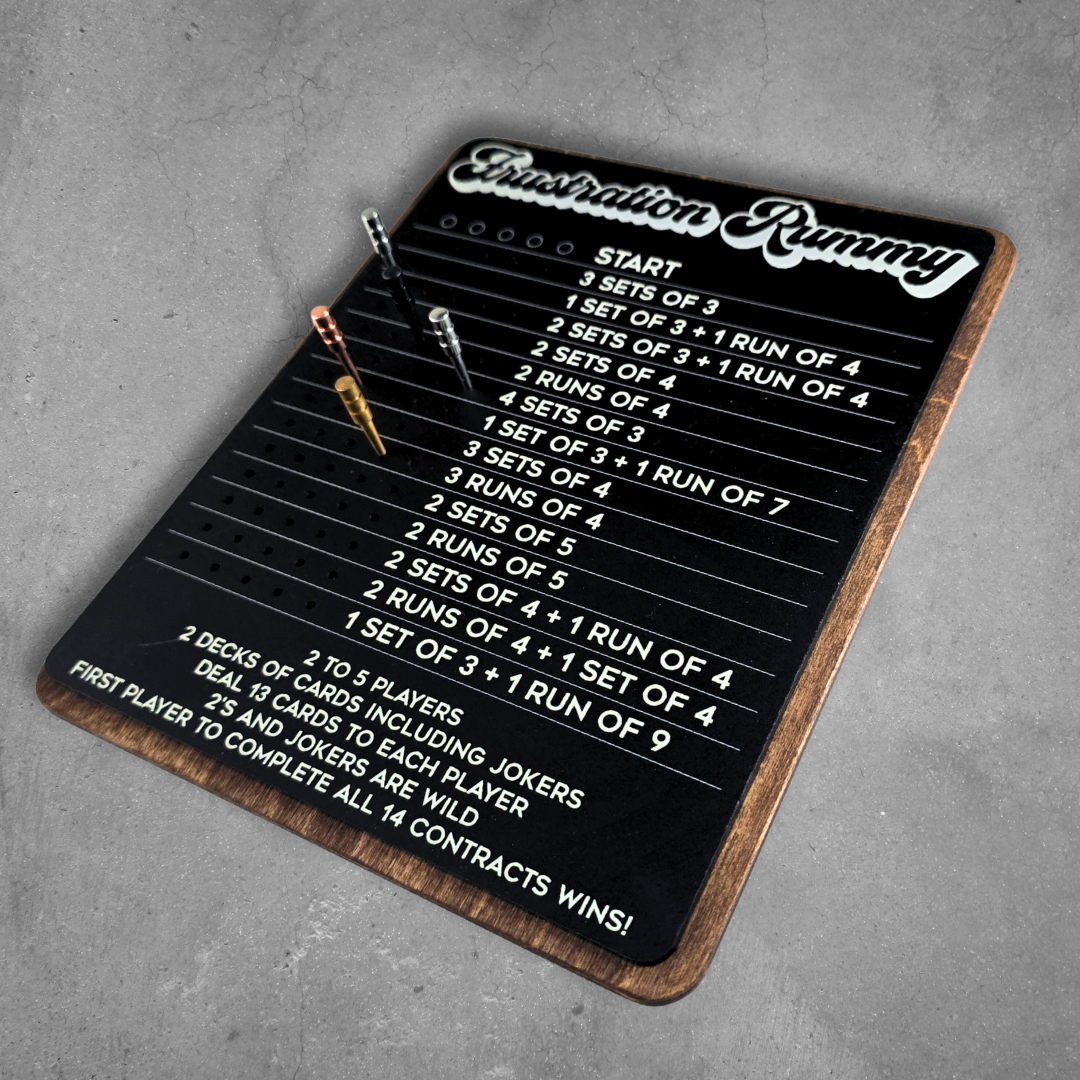 Frustration Rummy
START
3 SETS OF 3
1 SET OF 3 + 1 RUN OF 4
2 SETS OF 3 + 1 RUN OF 4
2 SETS OF 4
2 RUNS OF 4
4 SETS OF 3
1 SET OF 3 + 1 RUN OF 7
3 SETS OF 4
3 RUNS OF 4
2 SETS OF 5
2 RUNS OF 5
2 SETS OF 4 + 1 RUN OF 4
2 RUNS OF 4 + 1 SET OF 4
1 SET OF 3 + 1 RUN OF 9
2 TO 5 PLAYERS
2 DECKS OF CARDS INCLUDING JOKERS
DEAL 13 CARDS TO EACH PLAYER
2'S AND JOKERS ARE WILD
FIRST PLAYER TO COMPLETE ALL 14 CONTRACTS WINS!